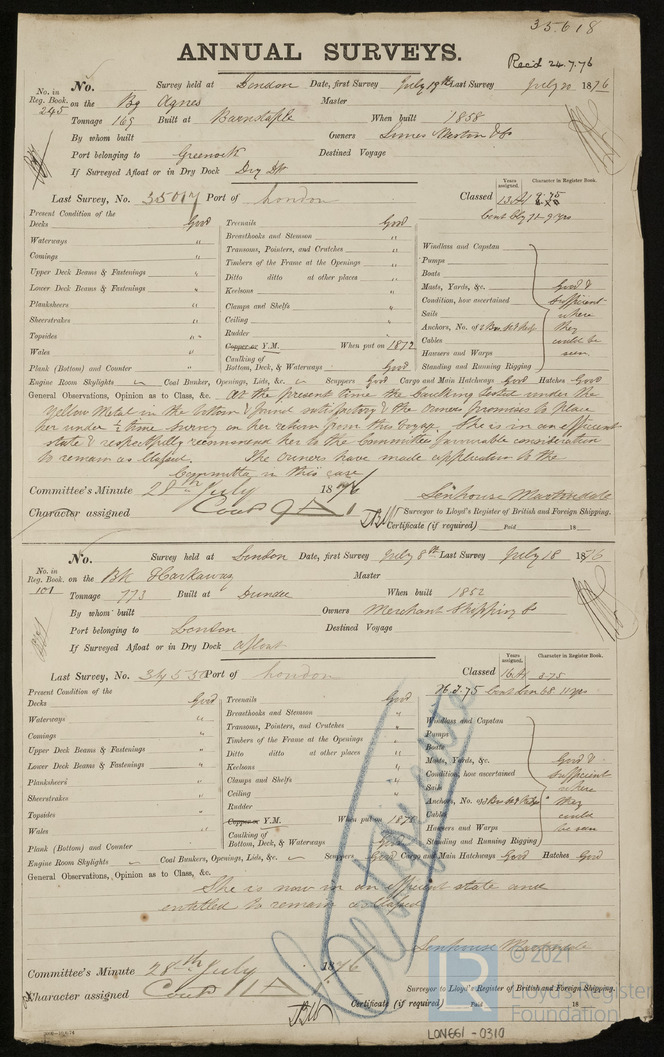 35618
ANNUAL SURVEYS.
Rec'd 24.7.76
No. in Reg. Book. 245
No. Survey held at London Date, first Survey July 19th Last Survey July 20 1876
on the Bg Agnes Master
Tonnage 169 Built at Barnstaple When built 1858
By whom built Owners
Port belonging to Greenock Destined Voyage
If Surveyed Afloat or in Dry Dock Dry Dk
Last Survey, No. 35017 Port of London Classed
Years assigned. Character in Register Book.
Present Condition of the
Decks Good
Waterways "
Comings "
Upper Deck Beams & Fastenings "
Lower Deck Beams & Fastenings "
Planksheers "
Sheerstrakes "
Topsides "
Wales "
Plank (Bottom) and Counter "
Treenails Good
Breasthooks and Stemson "
Transoms, Pointers, and Crutches "
Timbers of the Frame at the Openings "
Ditto ditto at other places "
Keelsons "
Clamps and Shelfs "
Ceiling "
Rudder "
Copper or Y.M. When put on 1872
Caulking of Bottom, Deck, & Waterways Good
Windlass and Capstan
Pumps
Boats
Masts, Yards, &c.
Condition, how ascertained
Sails
Anchors, No. of
Cables
Hawsers and Warps
Standing and Running Rigging
Good & sufficient where they could be seen
Engine Room Skylights Coal Bunker, Openings, Lids, &c. Scuppers Good Cargo and Main Hatchways Good Hatches Good
General Observations, Opinion as to Class, &c. At the present time the Caulking tested under the
Yellow Metal in the bottom & found satisfactory & the owners promises to place
her under ½ time survey on her return from this voyage. She is in an efficient
state & respectfully recommend her to the Committee's favourable consideration
to remain as Classed. The Owners have made application to the
Committee in this case
Committee's Minute 28th July 1876
Senhouse Martindale
Character assigned Contd 9 A 1
Surveyor to Lloyd's Register of British and Foreign Shipping.
Certificate (if required) Paid 18
No. in Reg. Book. 101
No. Survey held at London Date, first Survey July 8th Last Survey July 18 1876
on the Bk Harkaway Master
Tonnage 773 Built at Dundee When built 1852
By whom built Owners Merchant Shipping Co
Port belonging to London Destined Voyage
If Surveyed Afloat or in Dry Dock Afloat
Last Survey, No. Port of London Classed
Years assigned. Character in Register Book.
Present Condition of the
Decks Good
Waterways "
Comings "
Upper Deck Beams & Fastenings "
Lower Deck Beams & Fastenings "
Planksheers "
Sheerstrakes "
Topsides "
Wales "
Plank (Bottom) and Counter "
Treenails Good
Breasthooks and Stemson "
Transoms, Pointers, and Crutches "
Timbers of the Frame at the Openings "
Ditto ditto at other places "
Keelsons "
Clamps and Shelfs "
Ceiling "
Rudder "
Copper or Y.M. When put on
Caulking of Bottom, Deck, & Waterways Good
Windlass and Capstan
Pumps
Boats
Masts, Yards, &c.
Condition, how ascertained
Sails
Anchors, No. of
Cables
Hawsers and Warps
Standing and Running Rigging
Good & sufficient where they could be seen
Engine Room Skylights Coal Bunkers, Openings, Lids, &c. Scuppers Good Cargo and Main Hatchways Good Hatches Good
General Observations, Opinion as to Class, &c.
She is now in an efficient state and
entitled to remain as Classed
Senhouse Martindale
Committee's Minute 28th July 1876
Character assigned Contd 11 A 1
Surveyor to Lloyd's Register of British and Foreign Shipping.
Certificate (if required) Paid 18
LON661-0310
© 2021
Lloyd's Register
Foundation